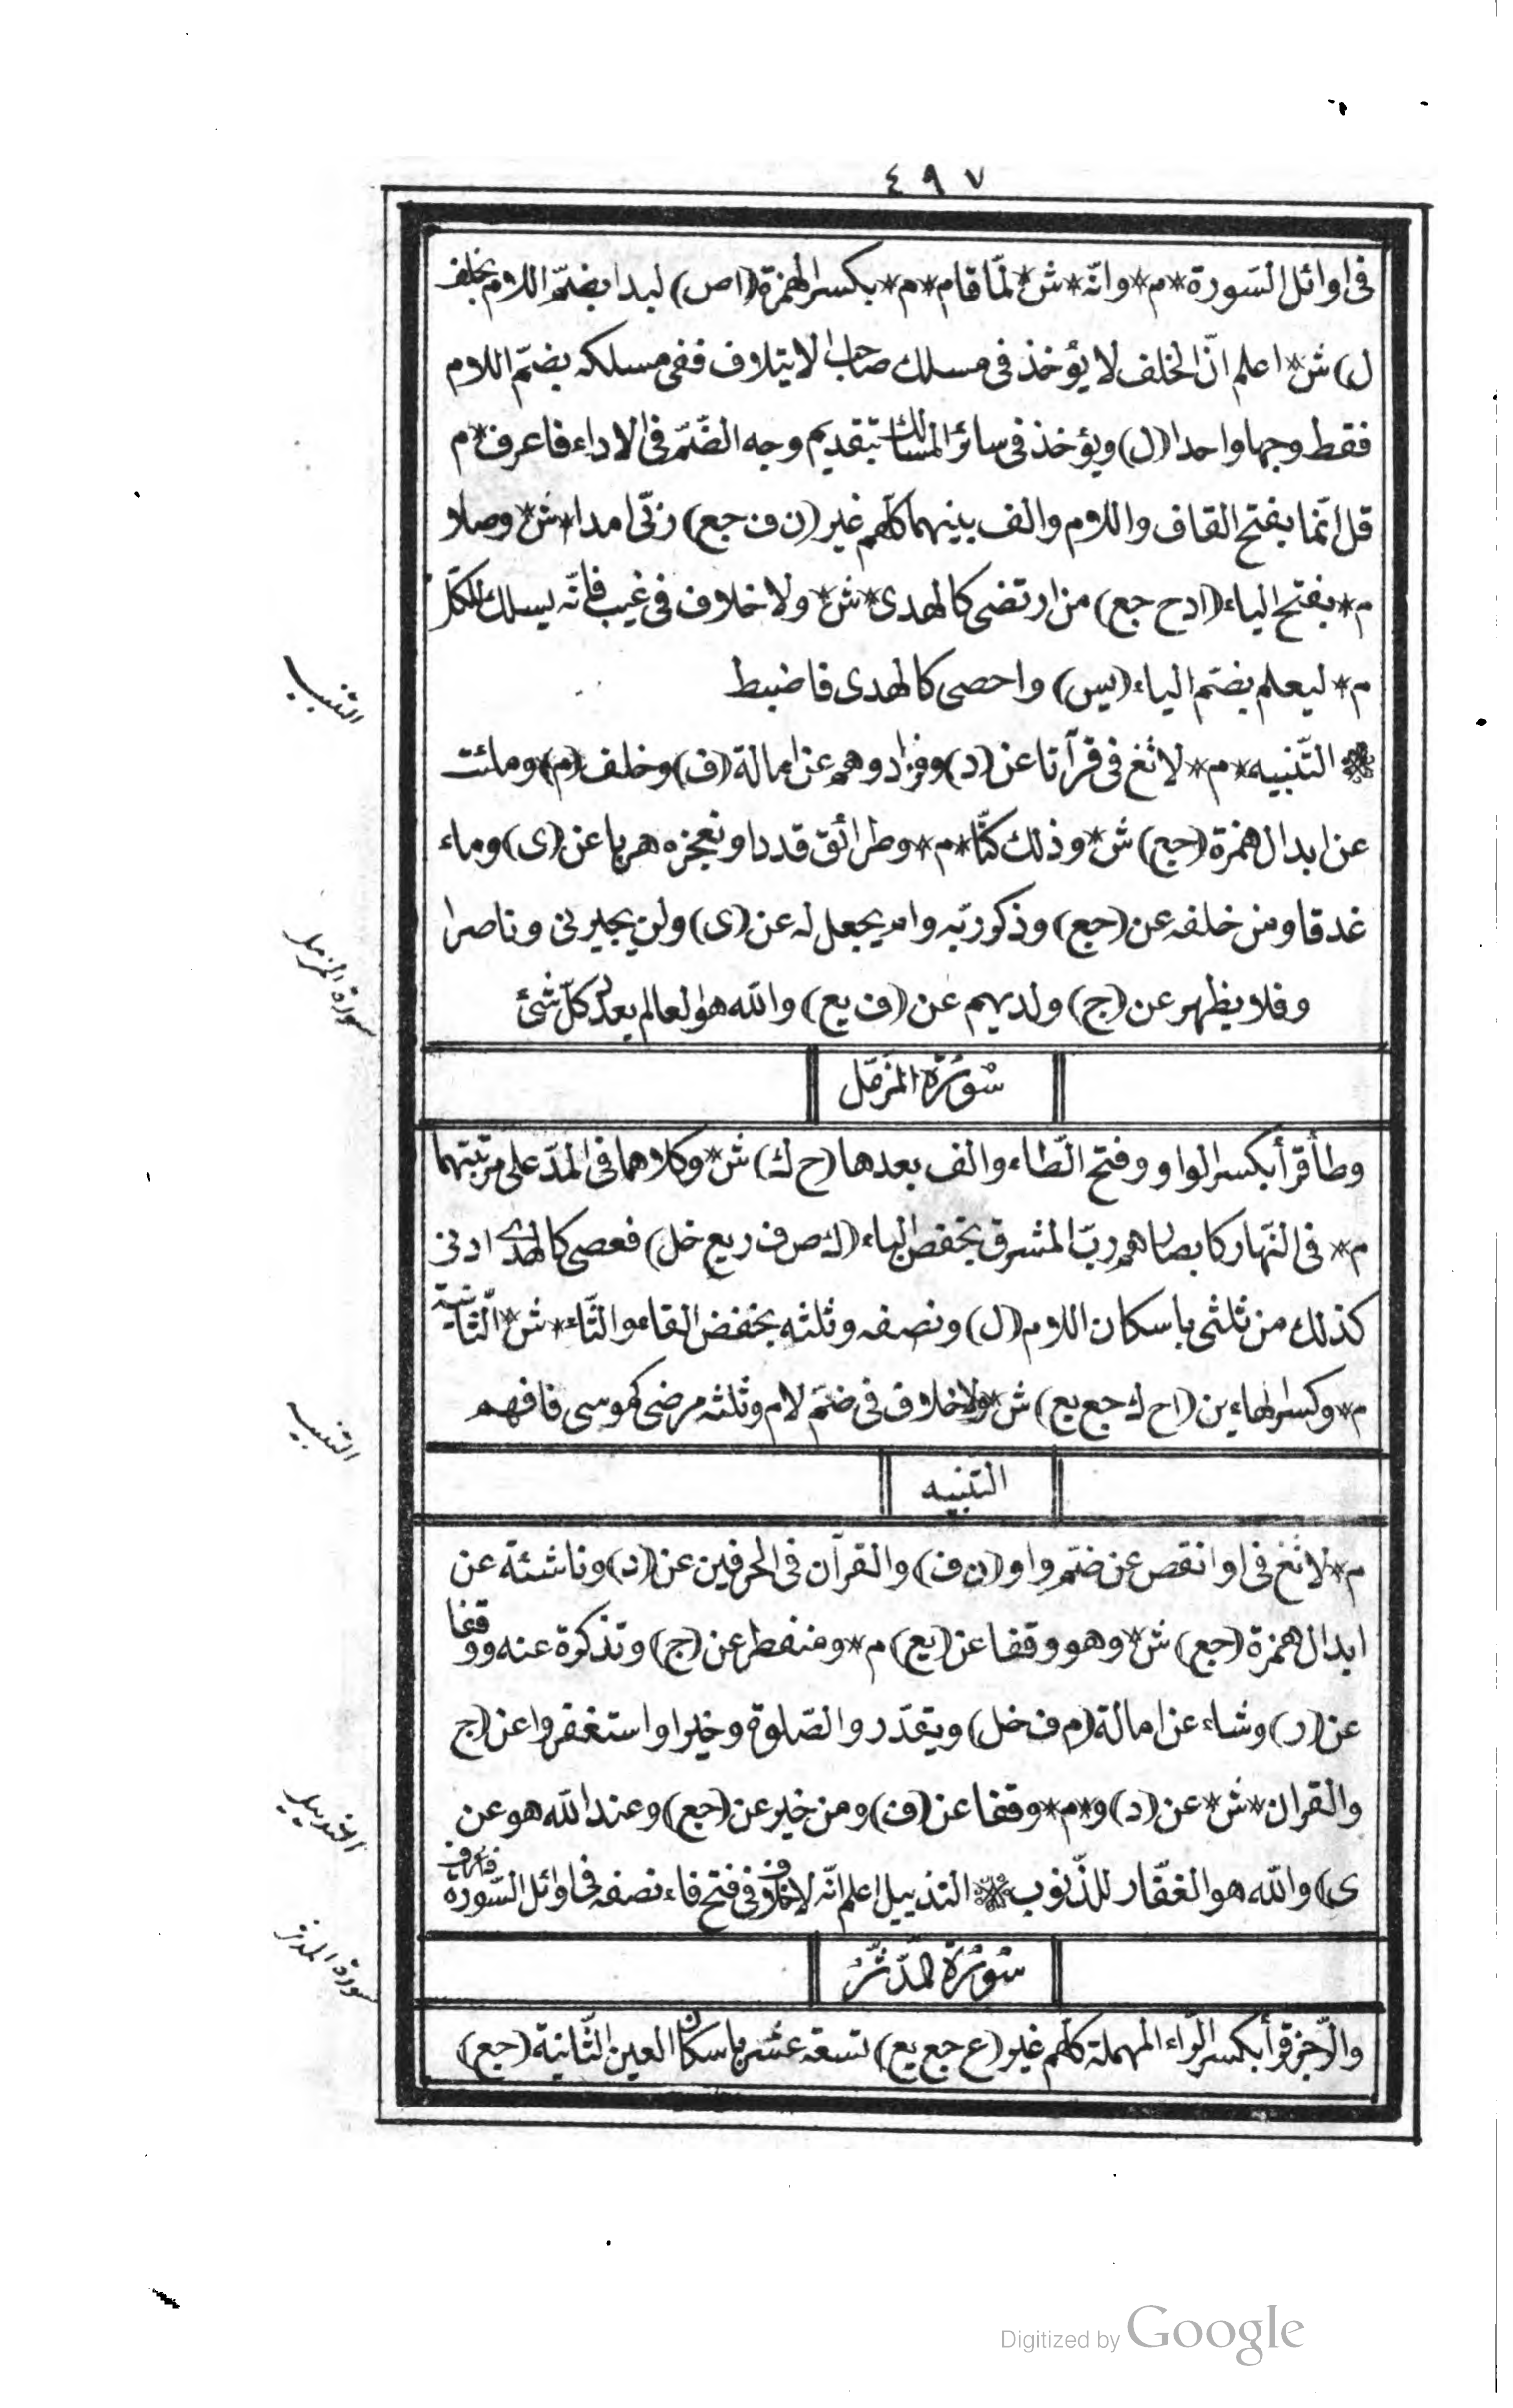 ٤٩٧
فى اوائل السّورة * م * وانّه * ش * لمّا قام * م * بكسر الهمزة (اص) لبدا بضمّ اللام بخلف
ل) ش * اعلم انّ الخلف لا يؤخذ فى مسلك صاحب الايتلاف ففى مسلكه بضمّ اللام
فقط وجها واحدا (ل) ويؤخذ فى سائر المسالك بتقديم وجه الضّمّ فى الاداء فاعرف * م
قل انّما بفتح القاف واللام والف بينهما كلّهم غير (ن ف جع) ربّى امدا * ش * وصلا
م * بفتح الياء (ا د ح جع) من ارتضى كالهدى * ش * ولا خلاف فى غيب فانّه يسلك للكلّ
م * ليعلم بضمّ الياء (يس) واحصى كالهدى فاضبط
التّنبيه * م * لا تغ فى قرآنا عن (د) وفزادوهم عن امالة (ف) وخلف (م) وملئت
عن ابدال همزة (جع) ش * وذلك كنّا * م * وطرائق قددا ونعجزه هربا عن (ى) وماء
غدقا ومن خلفه عن (جع) وذكر ربّه وام يجعل له عن (ى) ولن يجيرنى وناصرا
وفلا يظهر عن (ج) ولديهم عن (ف يع) والله هو العالم بعدد كلّ شئ
سورة المزمّل
وطأ قرأ بكسر الواو وفتح الطّاء والف بعدها (ح ك) ش * وكلاهما فى المدّ على مرتبتهما
م * فى النّهار كابصارهم ربّ المشرق بخفض الباء (ك ص ف ر يع خل) فعصى كالهدى ادنى
كذلك من ثلثى باسكان اللام (ل) ونصفه وثلثه بخفض الفاء والثّاء * ش * الثّانية
م * وكسر الهاءين (ا ح ك جع يع) ش * ولا خلاف فى ضمّ لام وثلثه مرضى كموسى فافهم
التّنبيه
م * لا تغ فى او انقص عن ضمّ واو (ن ف) والقرآن فى الحرفين عن (د) وناشئة عن
ابدال همزة (جع) ش * وهو وقفا عن (يع) م * ومنفطر عن (ج) وتذكرة عنه ووقفا
عن (ر) وشاء عن امالة (م ف خل) ويقدّر والصّلوة وخيرا واستغفروا عن (ج
والقران * ش * عن (د) و * م * وقفا عن (ف) ومن خير عن (جع) وعند الله هو عن
ى) والله هو الغفّار للذّنوب التذييل اعلم انّه لا خلاف فى فتح فاء نصفه فى اوائل السّورة فاعرف
سورة المدّثّر
والرّجز قرأ بكسر الرّاء المهملة كلّهم غير (ع جع يع) تسعة عشر باسكان العين الثّانية (جع)
التنبيه
سورة المزمل
التنبيه
التذييل
سورة المدثر
Digitized by Google